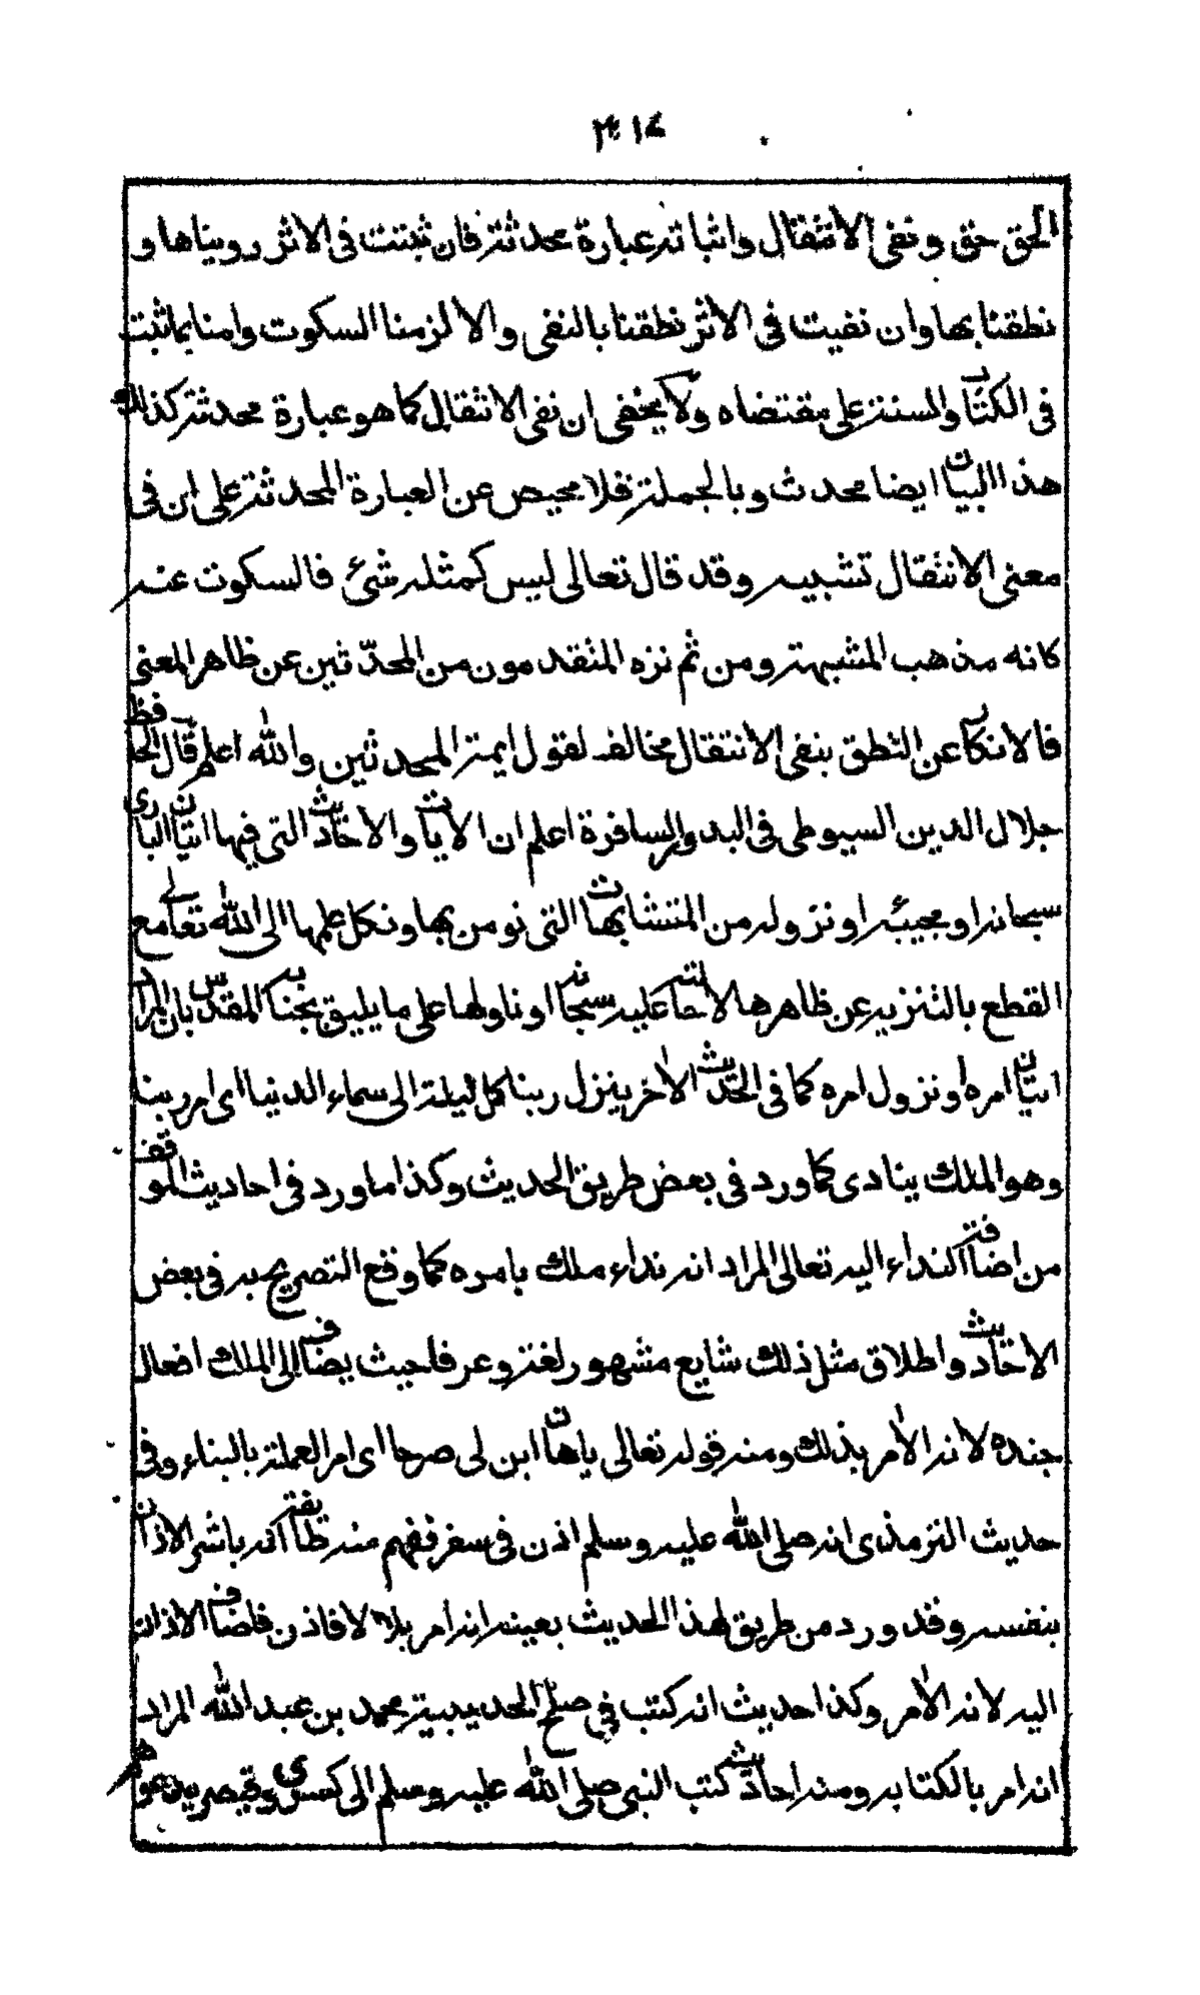 ٣١٤
الحق حق و نفى الانتقال واثباته عبارة محدثة فان ثبتت فى الاثر رويناها و
نطقنا بها وان نفيت فى الاثر نطقنا بالنفى والا لزمنا السكوت وامنا بما ثبت
فى الكتاب والسنة على مقتضاه ولا يخفى ان نفى الانتقال كما هو عبارة محدثة كذالك
هذا البيان ايضا محدث وبالجملة فلا محيص عن العبارة المحدثة على ان فى
معنى الانتقال تشبيه وقد قال تعالى ليس كمثله شئ فالسكوت عنه
كانه مذهب المشبهة ومن ثم نزه المتقدمون من المحدّثين عن ظاهر المعنى
فالانكار عن النطق بنفى الانتقال مخالف لقول ايمة المحدثين والله اعلم قال الحافظ
جلال الدين السيوطى فى البدور السافرة اعلم ان الايات والاحاديث التى فيها اتيان البارى
سبحانه او مجيئه او نزوله من المتشابهات التى نومن بها ونكل علمها الى الله تعالى مع
القطع بالتنزيه عن ظاهرها لاستحالته عليه سبحانه او ناولها على ما يليق بجنابه المقدس بان المراد
اتيان امره او نزول امره كما فى الحديث الاخر ينزل ربنا كل ليلة الى سماء الدنيا اى امر ربنا
وهو الملك ينادى كما ورد فى بعض طريق الحديث وكذا ما ورد فى احاديث الموقف
من اضافة النداء اليه تعالى المراد انه نداء ملك بامره كما وقع التصريح به فى بعض
الاحاديث واطلاق مثل ذلك شايع مشهور لغة وعرفا حيث يضاف الى الملك افعال
جنده لانه الامر بذلك ومنه قوله تعالى ياهامان ابن لى صرحا اى امر العملة بالبناء وفى
حديث الترمذى انه صلى الله عليه وسلم اذن فى سفر ففهم منه طايفة انه باشر الاذان
بنفسه وقد ورد من طريق لهذا الحديث بعينه انه امر بلالا فاذن فاضاف الاذان
اليه لانه الامر وكذا حديث انه كتب فى صلح الحديبية محمد بن عبد الله المراد
انه امر بالكتابه ومنه احاديث كتب النبى صلى الله عليه وسلم الى كسرى وقيصر يدعوهم